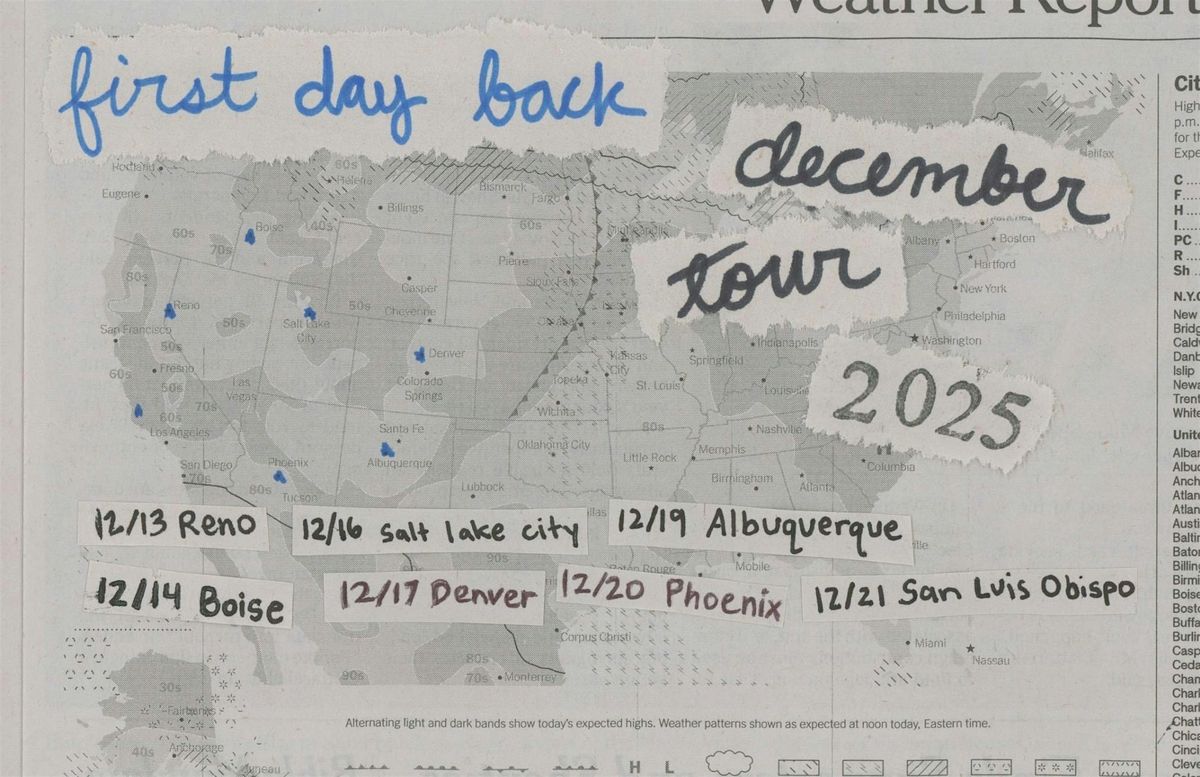 Weather Report
first day back
december
tour
2025
12/13 Reno
12/16 salt lake city
12/19 Albuquerque
12/14 Boise
12/17 Denver
12/20 Phoenix
12/21 San Luis Obispo
Halifax
Eugene
Helena
Billings
Bismarck
Fargo
Boise
Pierre
Albany
Boston
Hartford
New York
Philadelphia
Washington
Casper
Cheyenne
Reno
Salt Lake
City
San Francisco
Denver
Colorado
Springs
Fresno
Las
Vegas
Los Angeles
San Diego
Santa Fe
Albuquerque
Phoenix
Tucson
Lubbock
Topeka
Kansas
City
Wichita
Oklahoma City
St. Louis
Springfield
Indianapolis
Nashville
Memphis
Little Rock
Birmingham
Atlanta
Columbia
Mobile
Corpus Christi
Monterrey
Miami
Nassau
Fairbanks
Anchorage
60s
70s
40s
60s
80s
50s
50s
50s
60s
50s
60s
70s
70s
80s
80s
90s
90s
80s
70s
30s
40s
Alternating light and dark bands show today's expected highs. Weather patterns shown as expected at noon today, Eastern time.
H L
Cit
High
p.m.
for t
Expe
C
F
H
I
PC
R
Sh
N.Y.C
New
Bridg
Cald
Danb
Islip
Newa
Trent
White
Unite
Albar
Albuq
Anch
Atlan
Atlan
Austi
Baltin
Baton
Billing
Birm
Boise
Bosto
Buffa
Burlin
Casp
Ceda
Char
Charl
Charl
Chatt
Chica
Cinci
Cleve